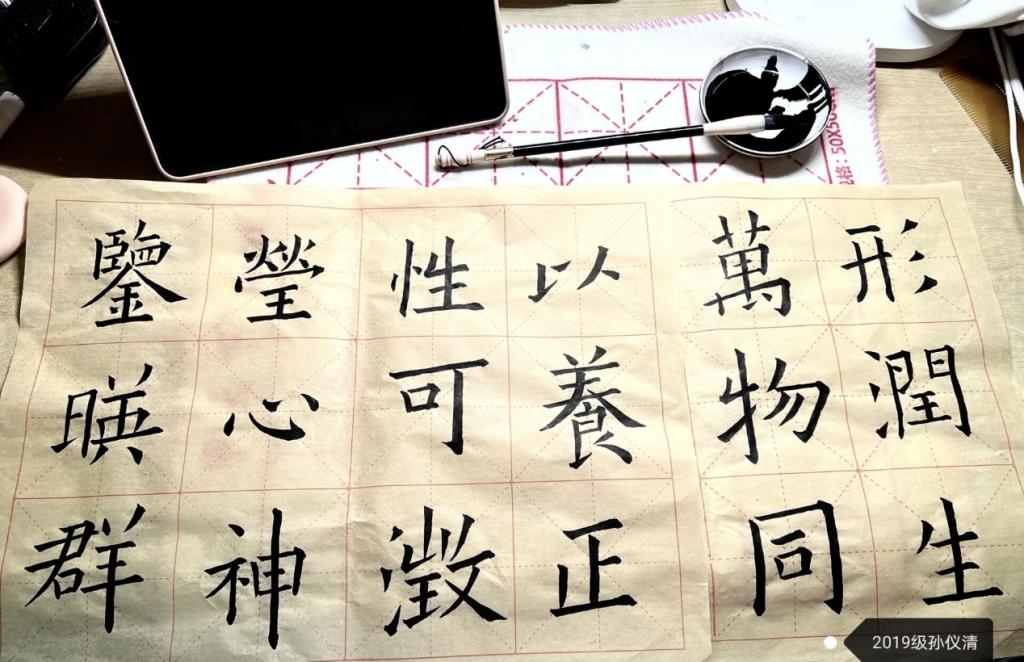 形潤生
萬物同
以養正
性可澂
瑩心神
鑒暎群
格: 50X50
2019级孙仪清